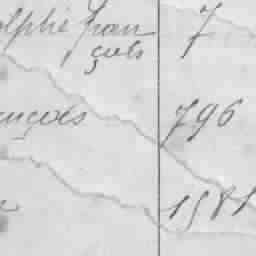 olphe fran 7
çois
ançois 796
1581